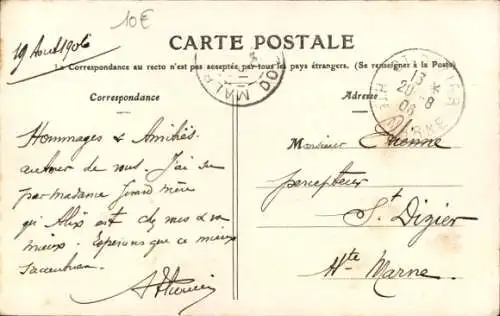 19 Août 1906
10€
CARTE POSTALE
La Correspondance au recto n'est pas acceptée par tous les pays étrangers. (Se renseigner à la Poste)
Correspondance
Adresse
Hommages & Amitiés
autour de vous. J'ai su
par madame Grand mère
qu'Alix est chez vous & va
mieux. Espérons que ce mieux
s'accentuera.
Monsieur Etienne
percepteur
St Dizier
Hte Marne
13
20-8
06